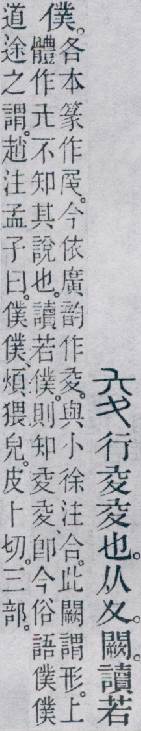 行𡕒𡕒也。从夊。闕。讀若
僕。各本篆作。今依廣韵作𡕒。與小徐注合。此闕謂形。上
體作不知其說也。讀若僕。則知𡕒𡕒卽今俗語僕僕
道途之謂。趙注孟子曰。僕僕、煩猥皃。皮卜切。三部。